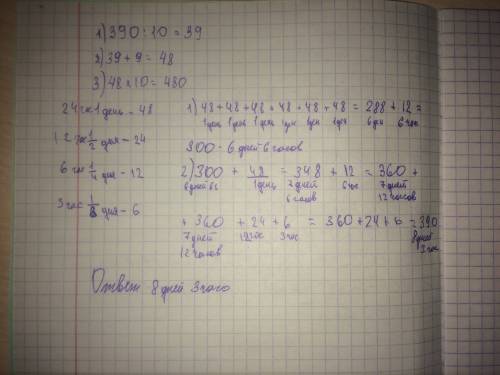 1) 390 : 10 = 39
2) 39 + 9 = 48
3) 48 × 10 = 480
24 час 1 день - 48
12 час 1/2 дня - 24
6 час 1/4 дня - 12
3 час 1/8 дня - 6
1) 48 + 48 + 48 + 48 + 48 + 48 = 288 + 12 =
1 день 1 день 1 день 1 день 1 день 1 день 6 дней 6 час
300 - 6 дней 6 часов
2) 300 + 48 = 348 + 12 = 360 +
6 дней 6 1 день 7 дней 6 час 7 дней
6 часов 12 часов
+ 360 + 24 + 6 = 360 + 24 + 6 = 390
7 дней 12 час 3 час 8 дней
12 часов 3 час
Ответ 8 дней 3 часа